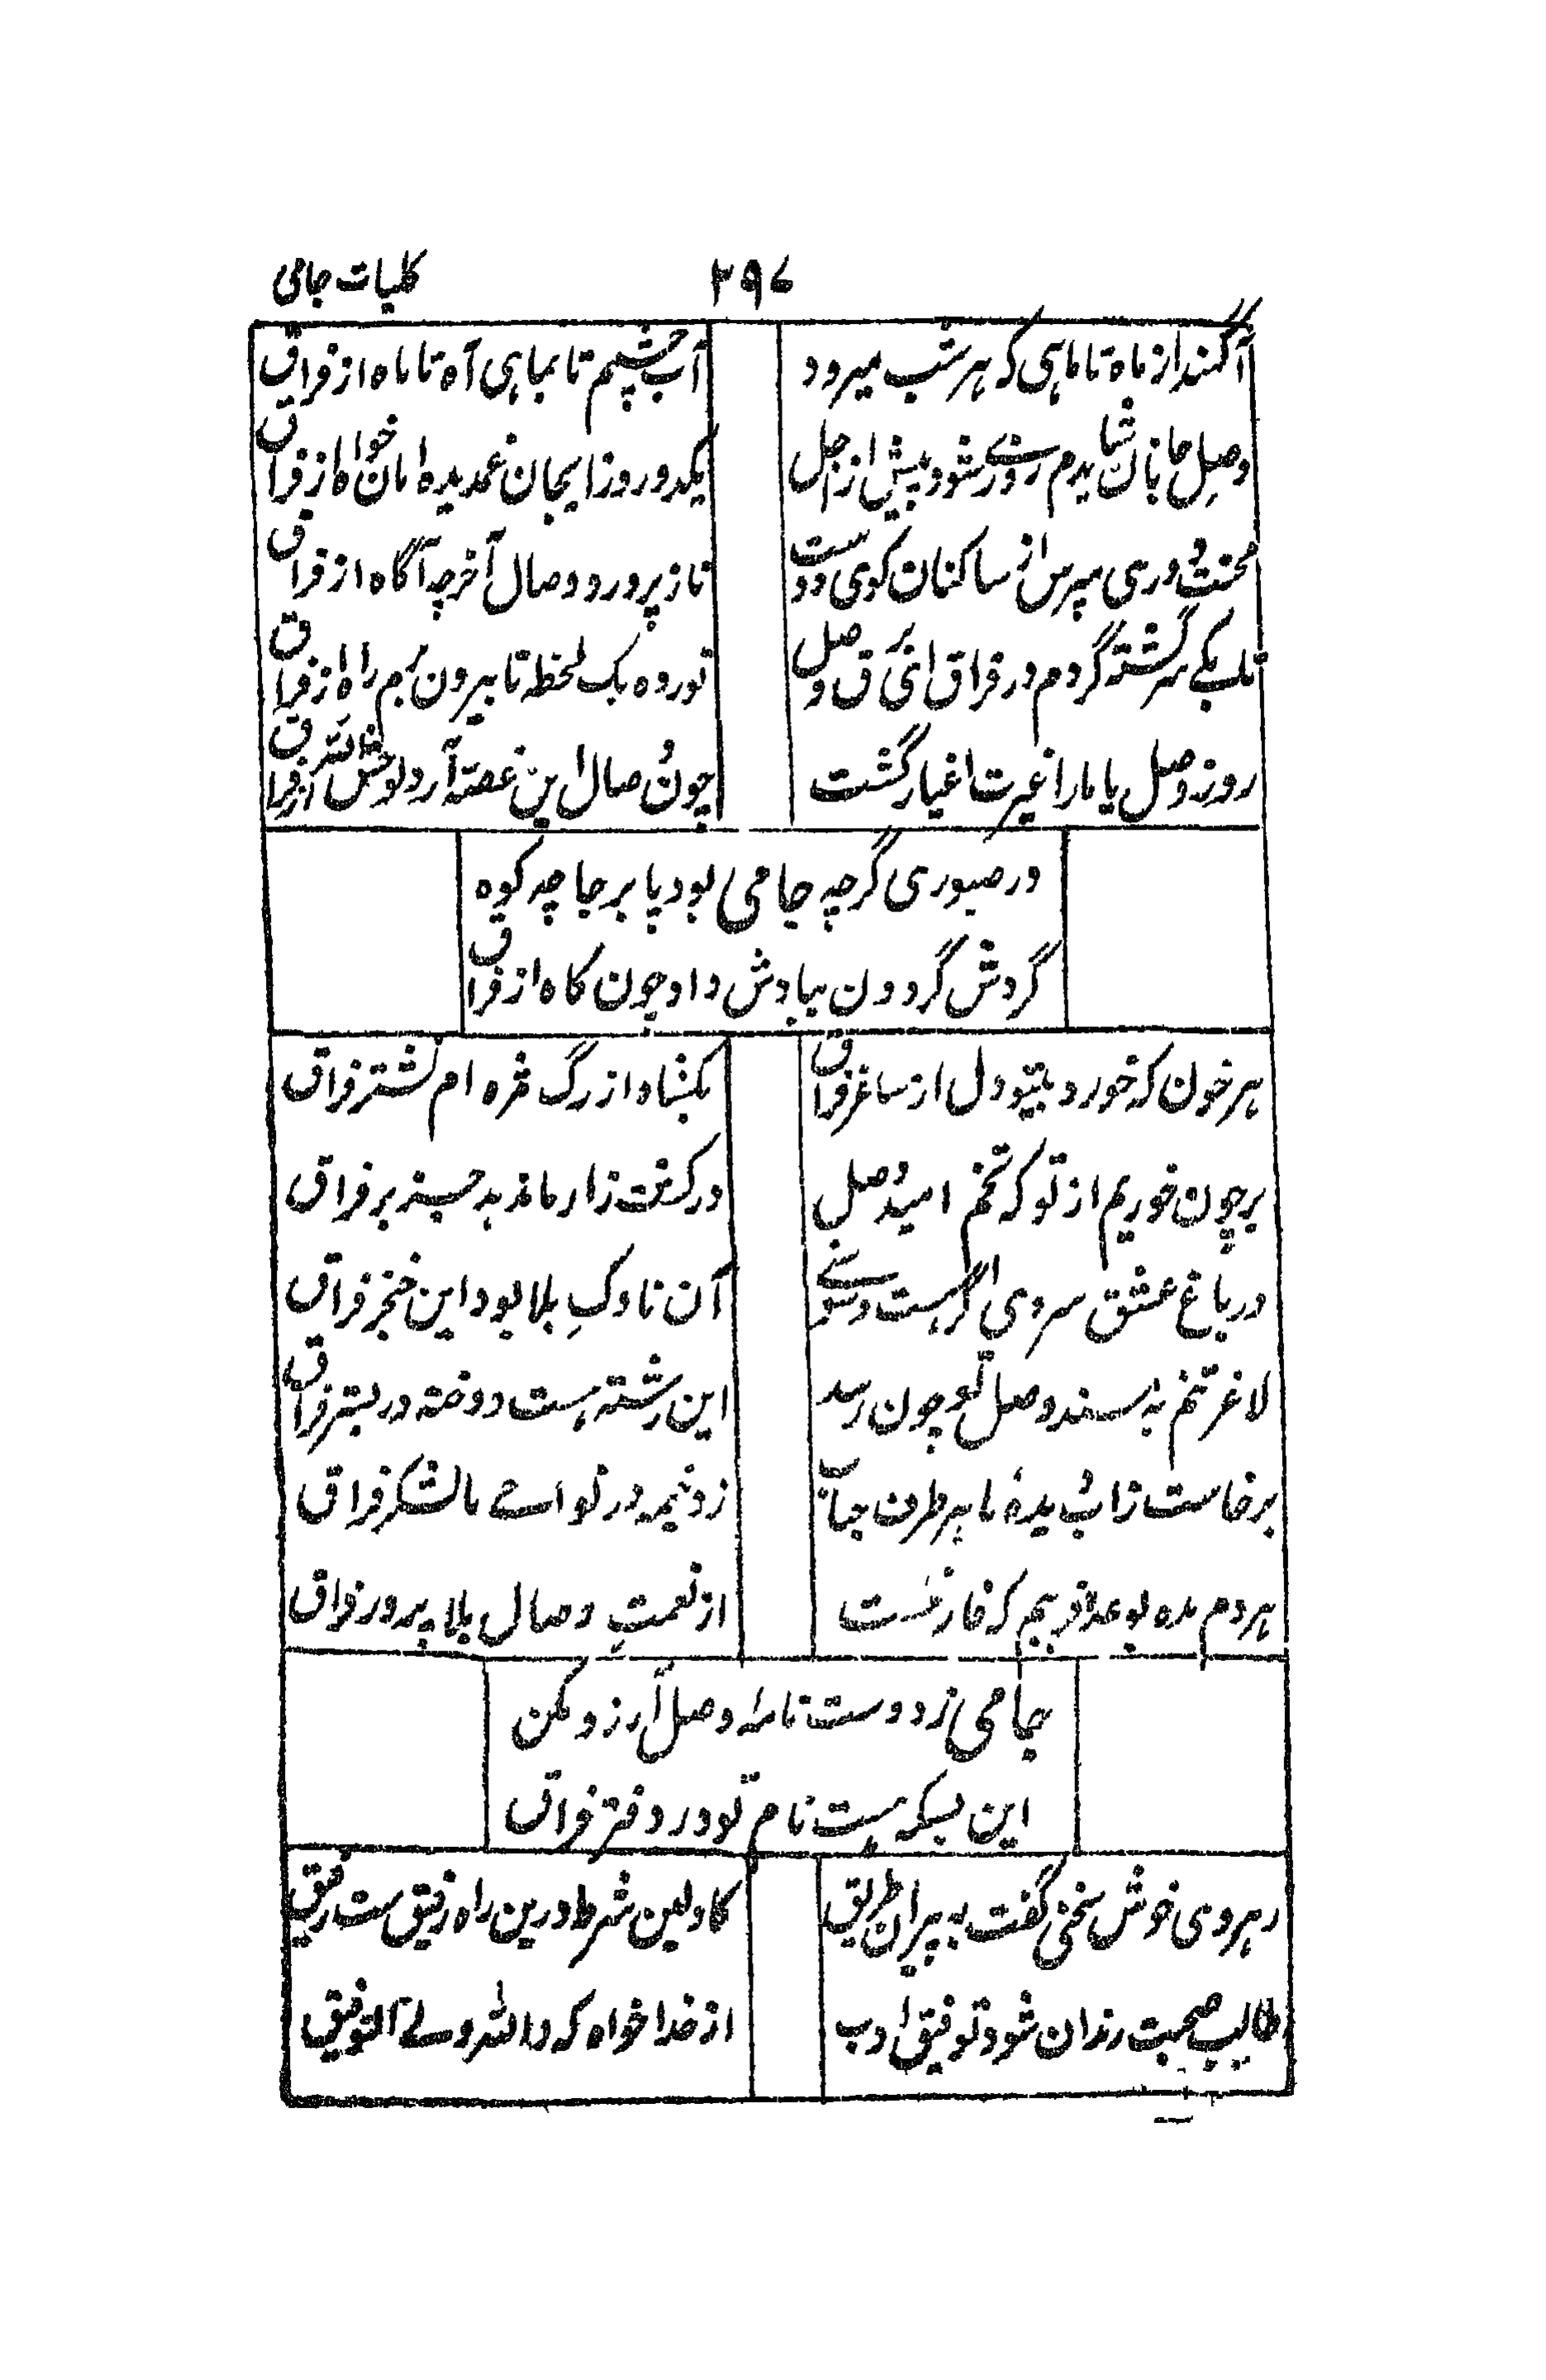 کلیات جامی ۲۹۷
آگهند از ماه تا ماهی که هر شب میرود
آب چشمم تا بماهی آه تا ماه از فراق
وصل جانان شایدم روزے شود پیش از اجل
یکدو روز ایجان غمدیده امان خواه از فراق
محنت دوری مپرس از ساکنان کوی دوست
ناز پرورد وصال آخر چه آگاه از فراق
تا بکے سرگشته گردم در فراق ای برق وصل
نور ده یک لحظه تا بیرون برم راه از فراق
روز وصل یا مارا غیرت اغیار گشت
چون وصال این غصه آرد لوحش الله از فراق
در صبوری گرچه جامی بود پا بر جا چه کوه
گردش گردون ببادش داد چون کاه از فراق
هر خون که خورد بیتو دل از ساغر فراق
بکشاد از رگ مژه ام نشتر فراق
بر چون خوریم از تو که تخم امید وصل
در کشت زار ماندهد جز بر فراق
در باغ عشق سروی اگر هست و سوسنے
آن ناوکِ بلا بود این خنجر فراق
لاغر تنم به مسند وصل تو چون رسد
این رشته هست دوخته در بستر فراق
برخاست ز آب دیدهٔ ما هر طرف حباب
زد خیمه در نواے ما لشکر فراق
هر دم مده بوعده فریبم که فارغست
از نعمتِ وصال بلا پرور فراق
جامی ز دوست نامه وصل آرزو مکن
این بسکه هست نام تو در دفتر فراق
رهروی خوش سخنی گفت به پیران طریق
کاولین شرط درین راه رفیق ست رفیق
طالب صحبت رندان شو و توفیق ادب
از خدا خواه که والله ولے التوفیق